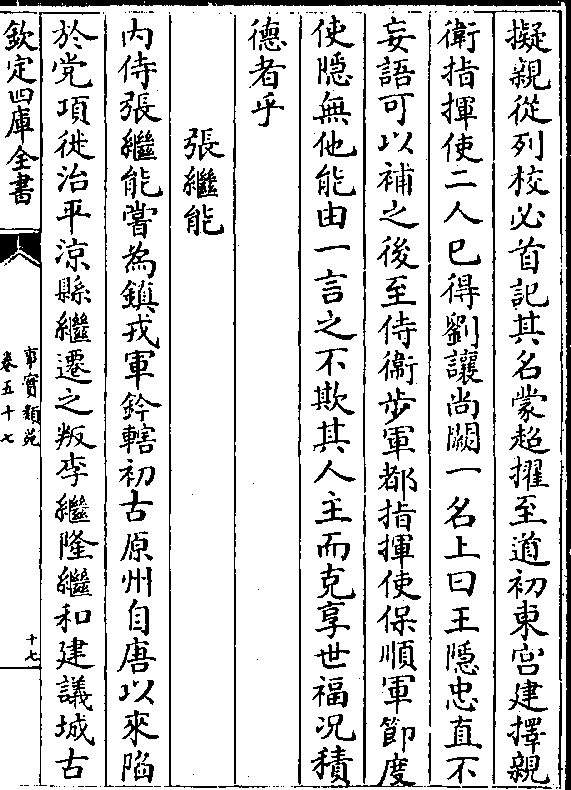 擬親從列校必首記其名蒙超擢至道初東宫建擇親
衛指揮使二人已得劉讓尚闕一名上曰王隱忠直不
妄語可以補之後至侍衛步軍都指揮使保順軍節度
使隱無他能由一言之不欺其人主而克享世福况積
德者乎
張繼能
内侍張繼能嘗為鎮戎軍鈐轄初古原州自唐以來陷
於党項徙治平涼縣繼遷之叛李繼隆繼和建議城古
欽定四庫全書
事實類苑
卷五十七
十七